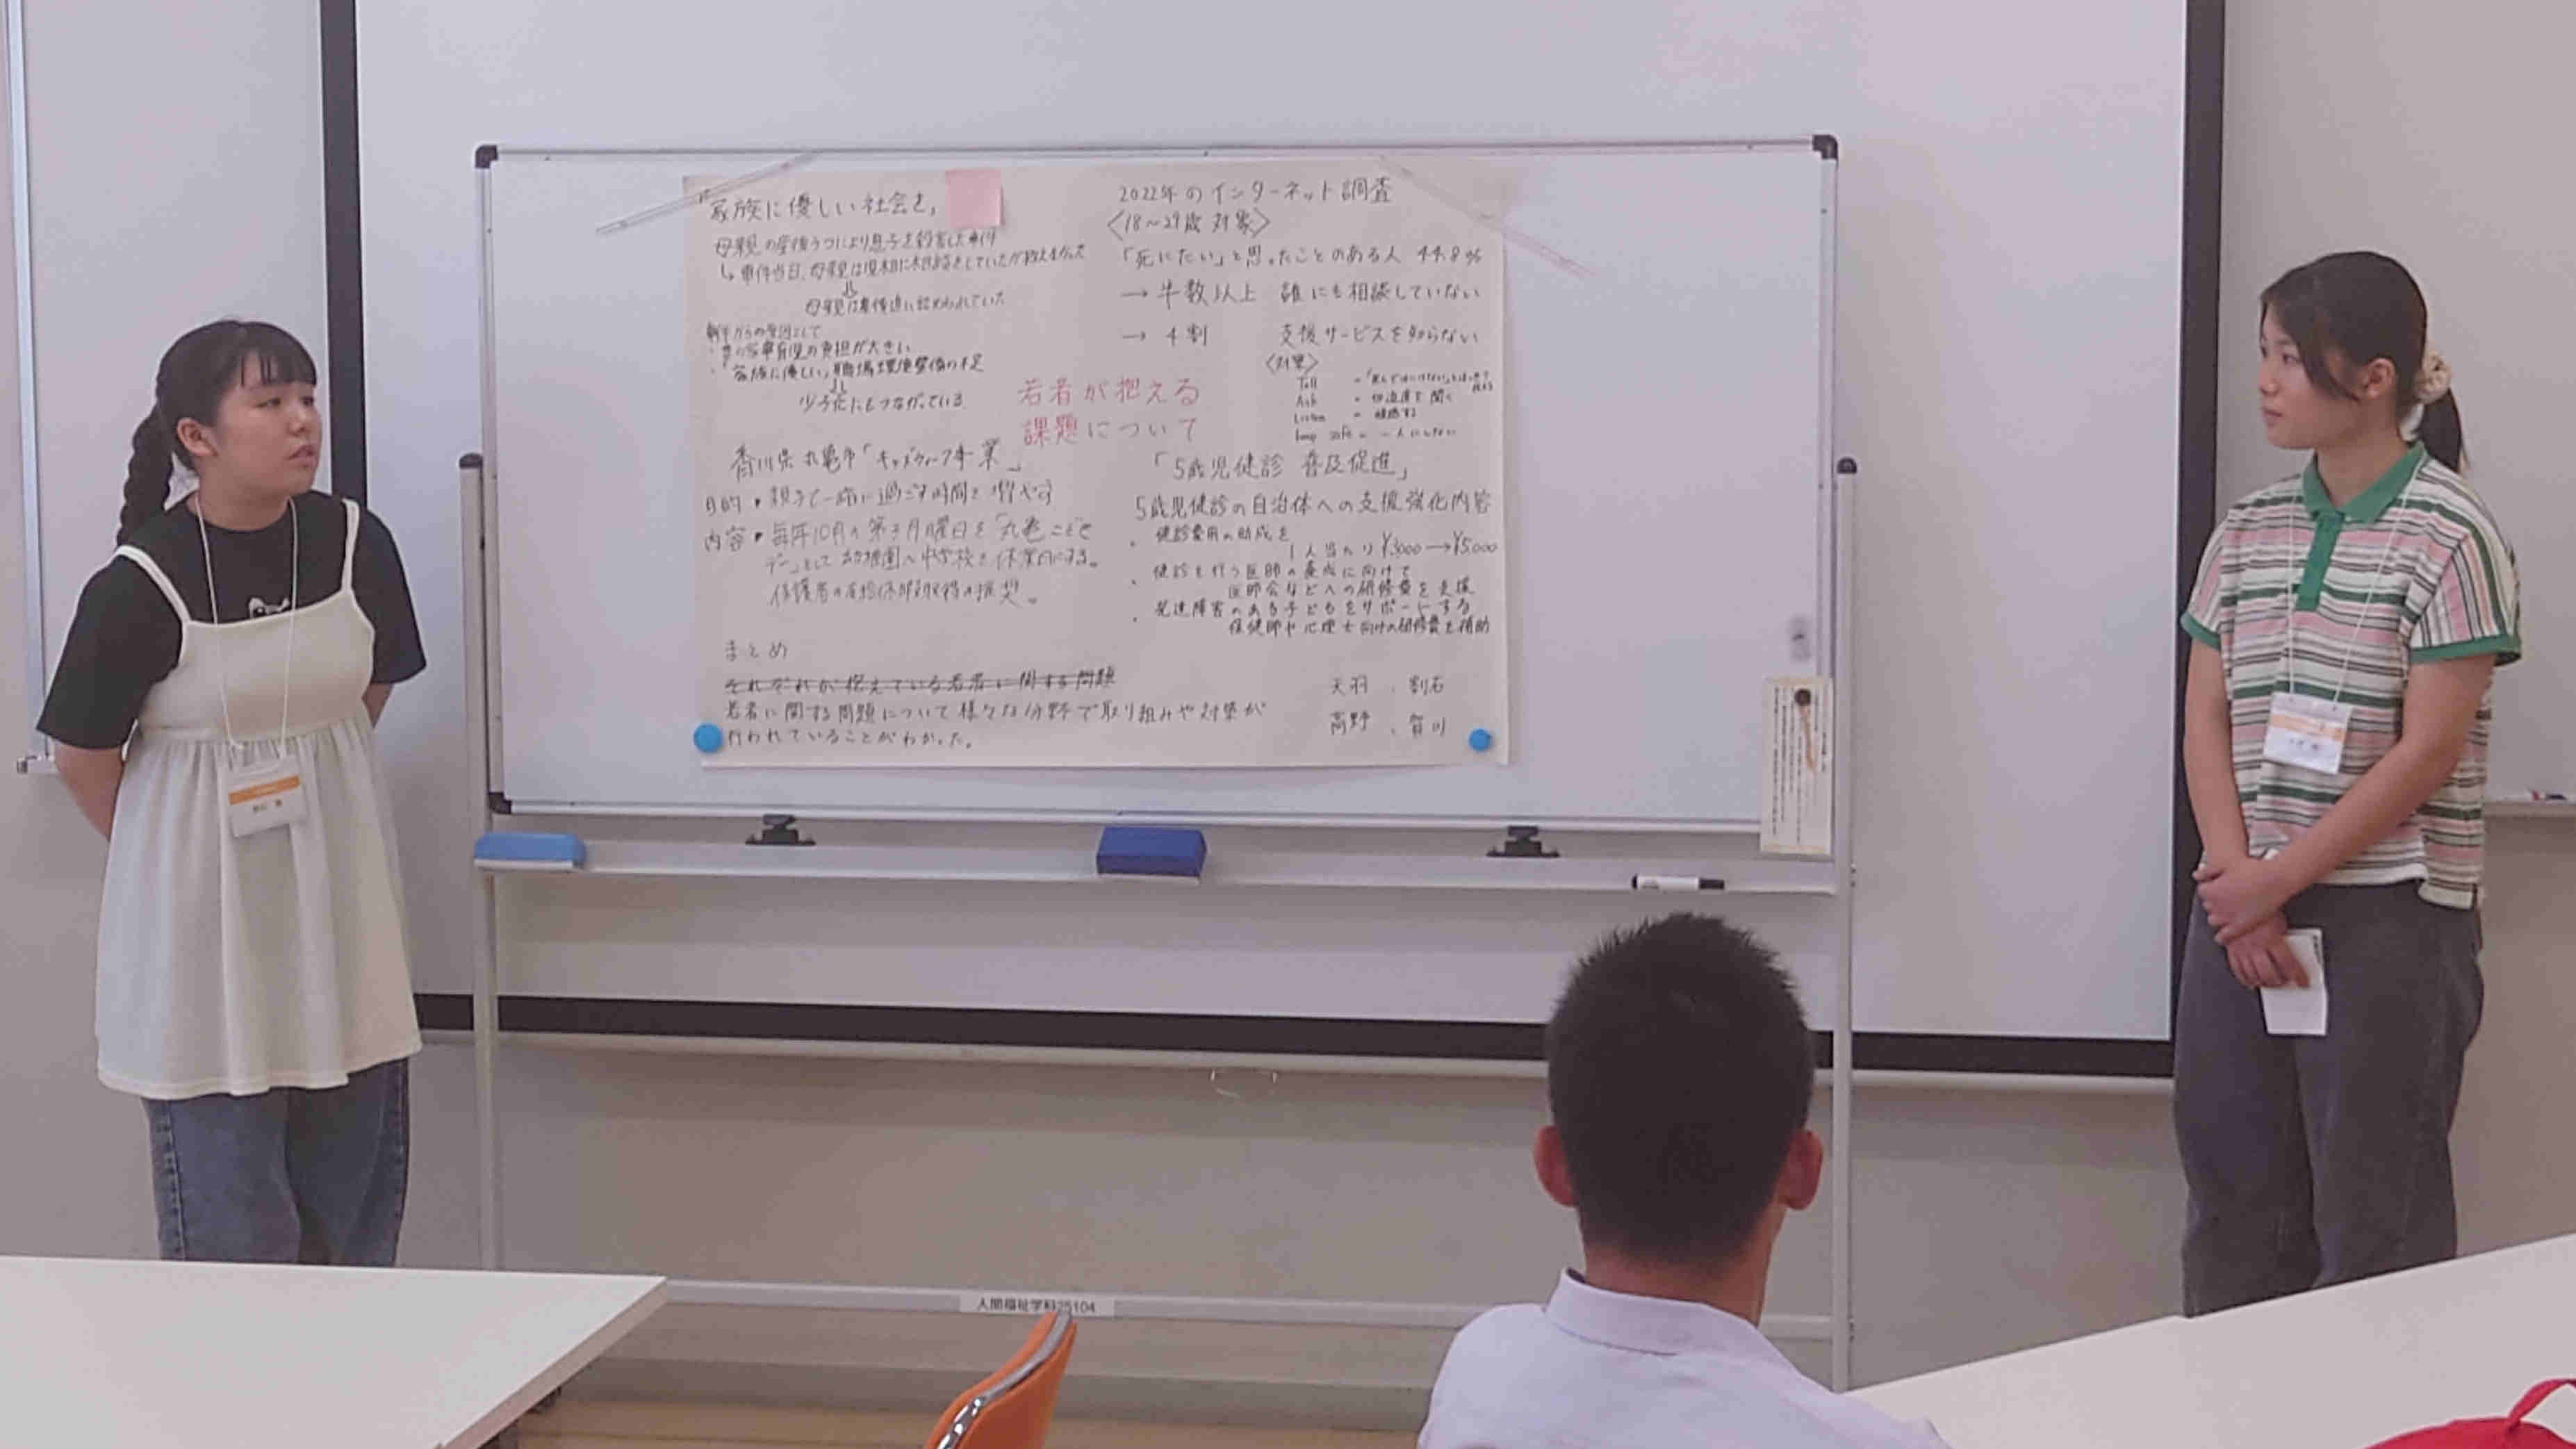 "家族に優しい社会を,
母親の産後うつにより息子を殺害した事件
母親は産後追い詰められていた
・妻の家事育児の負担が大きい
・「家族に優しい」職場環境整備の不足
少子化にもつながっている
香川県丸亀市「キッズウィーク事業」
目的・親子で一緒に過ごす時間を増やす
内容・毎年10月の第3月曜日を「丸亀こども
デー」として幼稚園〜中学校を休業日にする。
保護者の有給休暇取得の推奨。
若者が抱える
課題について
2022年のインターネット調査
〈18〜29歳 対象〉
「死にたい」と思ったことのある人 44.8%
→ 半数以上 誰にも相談していない
→ 4割 支援サービスを知らない
〈対策〉
Tell
Ask = 切迫度を聞く
Listen = 傾聴する
keep safe = 一人にしない
「5歳児健診 普及促進」
5歳児健診の自治体への支援強化内容
・健診費用の助成を
1人当たり ¥3000→¥5000
・健診を行う医師の養成に向けて
医師会などへの研修費を支援
・発達障害のある子どもをサポートする
保健師や心理士向けの研修費を補助
まとめ
それぞれが抱えている若者に関する問題
若者に関する問題について様々な分野で取り組みや対策が
行われていることがわかった。
天羽、割石
高野、賀川
人間福祉学科25104